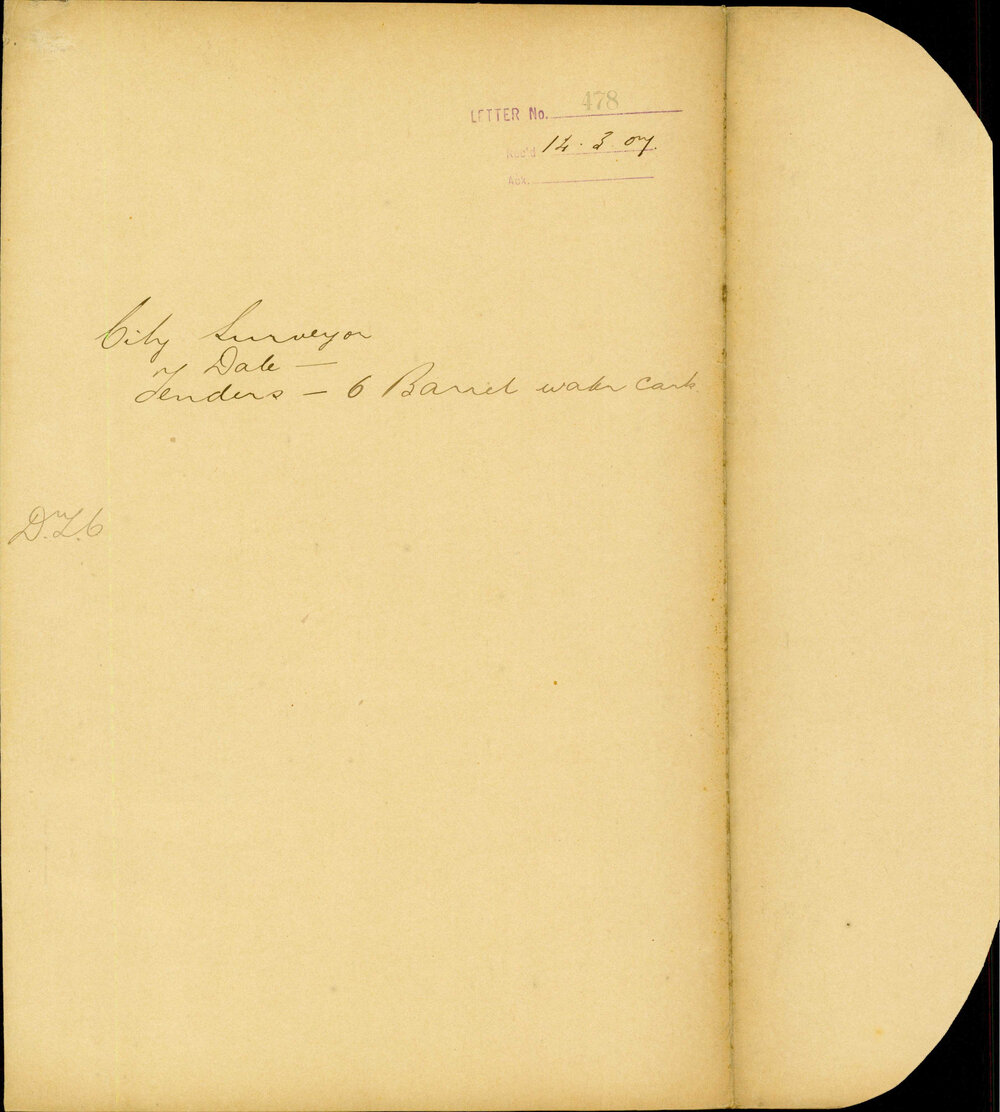 LETTER No. 478
Rec'd 14.3.07.
Ack.
City Surveyor
Date —
Tenders — 6 Barrel water carts
D.T.C